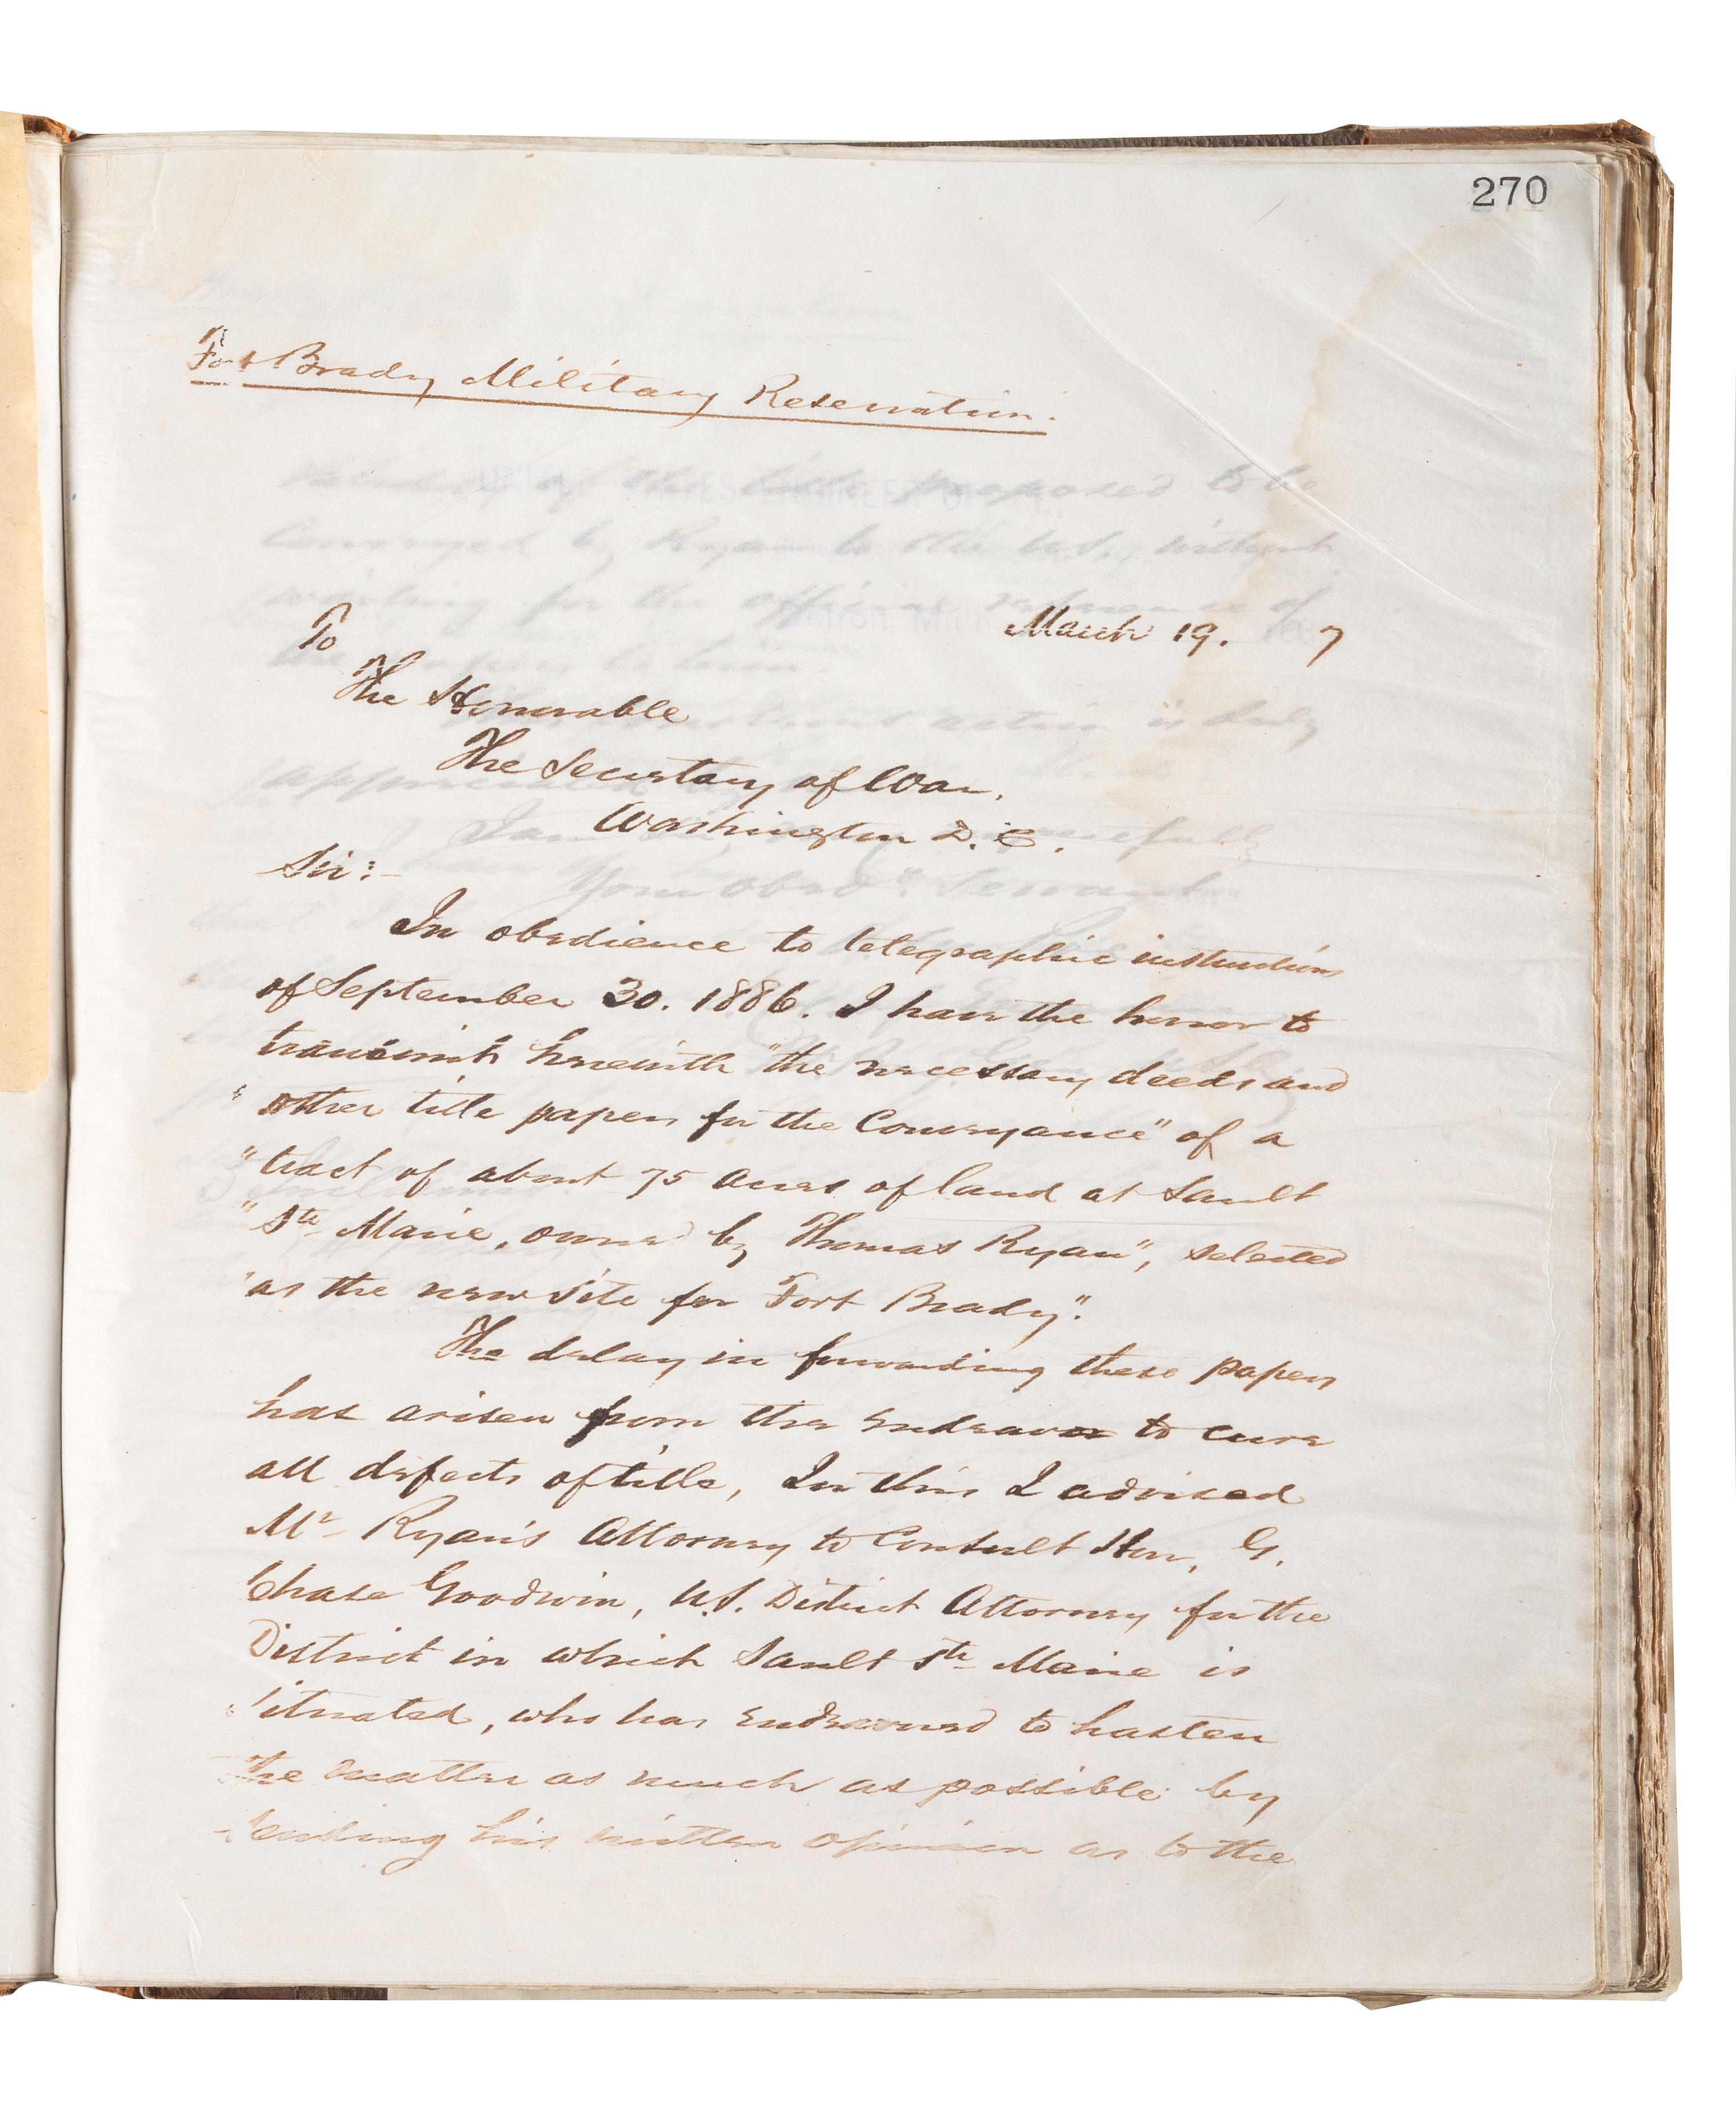 270
Fort Brady Military Reservation.
UNITED STATES ENGINEER OFFICE,
Detroit, Mich.
March 19. 7
To
The Honorable
The Secretary of War.
Washington D. C.
Sir:-
In obedience to telegraphic instructions
of September 30. 1886. I have the honor to
transmit herewith "the necessary deeds and
" other title papers for the Conveyance" of a
" tract of about 75 acres of land at Sault
" Ste Marie, owned by Thomas Ryan", selected
"as the new site for Fort Brady".
The delay in forwarding these papers
has arisen from the endeavor to cure
all defects of title, In this I advised
Mr Ryan's Attorney to Consult Hon, G.
Chase Goodwin, U.S. District Attorney for the
District in which Sault Ste Marie is
situated, who has endeavored to hasten
the matter as much as possible by
sending his written opinion as to the